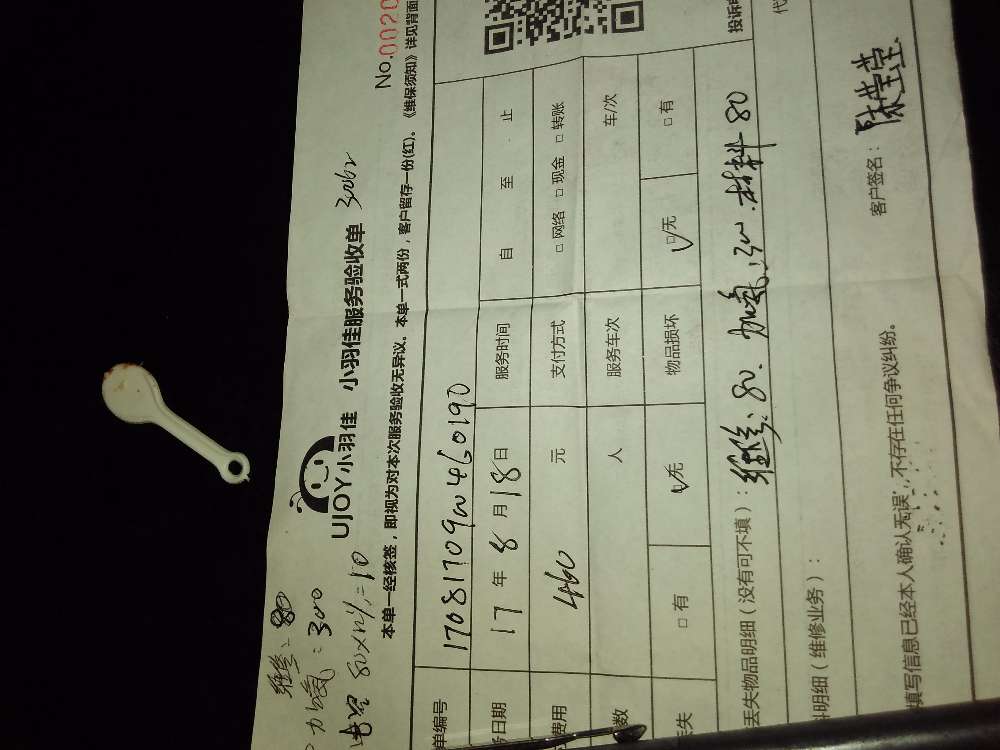 维修: 80
加氟: 300
No.0020
UJOY小羽佳 小羽佳服务验收单
本单一经核签，即视为对本次服务验收无异议。本单一式两份，客户留存一份(红)。《维保须知》详见背面
单编号 1708170900460190
务日期 17年8月18日 服务时间 自 至 止
费用 460 元 支付方式 □网络 □现金 □转账
数 人 服务车次 车/次
丢失 □有 ☑无 物品损坏 ☑无 □有
丢失物品明细（没有可不填）: 维修: 80. 加氟: 300. 材料 80
料明细（维修业务）:
填写信息已经本人确认无误，不存在任何争议纠纷。
客户签名: 陈莹莹
投诉
代